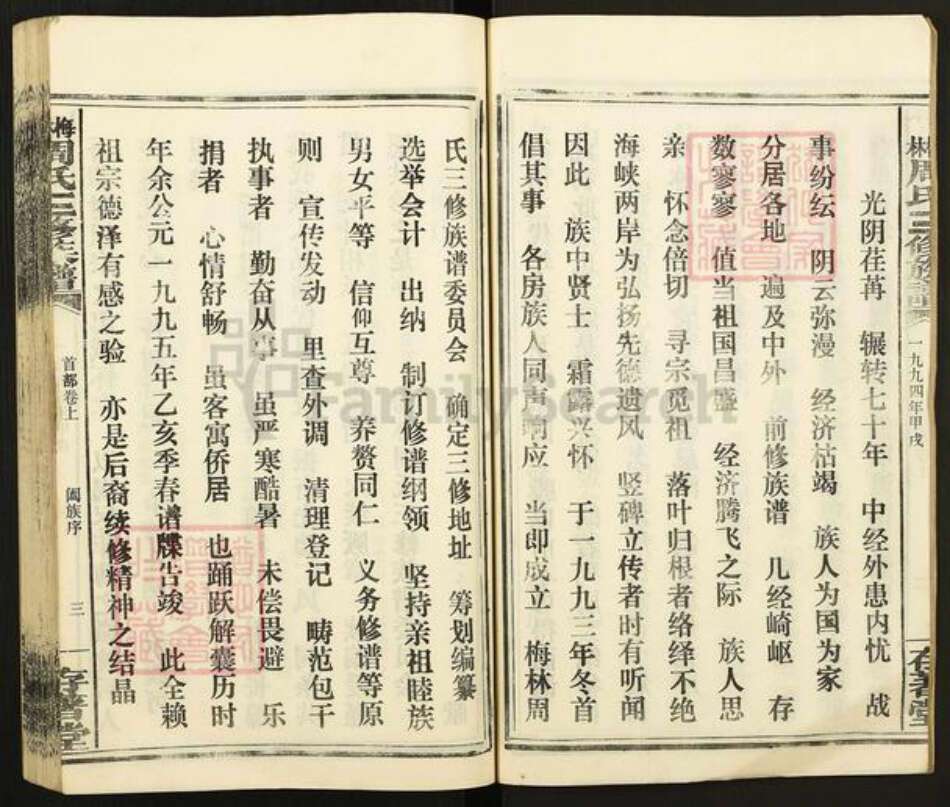 梅林周氏三修族譜
一九九四年甲戌
存著堂
光阴荏苒 辗转七十年 中经外患内忧 战
事纷纭 阴云弥漫 经济枯竭 族人为国为家
分居各地 遍及中外 前修族谱 几经崎岖 存
数寥寥 值当祖国昌盛 经济腾飞之际 族人思
亲 怀念倍切 寻宗觅祖 落叶归根者络绎不绝
海峡两岸为弘扬先德遗风 竖碑立传者时有听闻
因此 族中贤士 霜露兴怀 于一九九三年冬首
倡其事 各房族人同声响应 当即成立 梅林周
氏三修族谱委员会 确定三修地址 筹划编纂
选举会计 出纳 制订修谱纲领 坚持亲祖睦族
男女平等 信仰互尊 养赘同仁 义务修谱等原
则 宣传发动 里查外调 清理登记 畴范包干
执事者 勤奋从事 虽严寒酷暑 未偿畏避 乐
捐者 心情舒畅 虽客寓侨居 也踊跃解囊历时
年余公元一九九五年乙亥季春谱牒告竣 此全赖
祖宗德泽有感之验 亦是后裔续修精神之结晶
梅 周氏三修族譜
首部卷上
阖族序
三
存著堂
FamilySearch